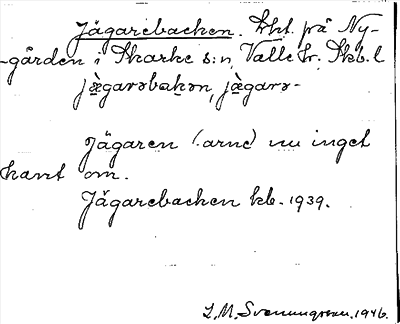 Jägarebacken. Lht. på Ny-
-gården i Skarke s:n, Valle hr. Skb. l
jägarəbakən, jàgarə-
Jägaren (. arne) nu inget
kant om.
Jägarebacken kb. 1939.
L.M. Svenungsson. 1946.